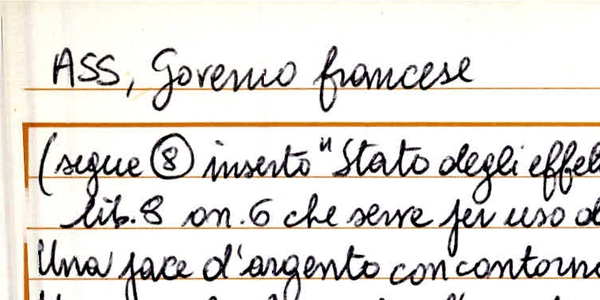 ASS, Governo francese
(segue ⑧ inserto "Stato degli effet
lib. 8 on. 6 che serve per uso d
Una pace d'argento con contorn